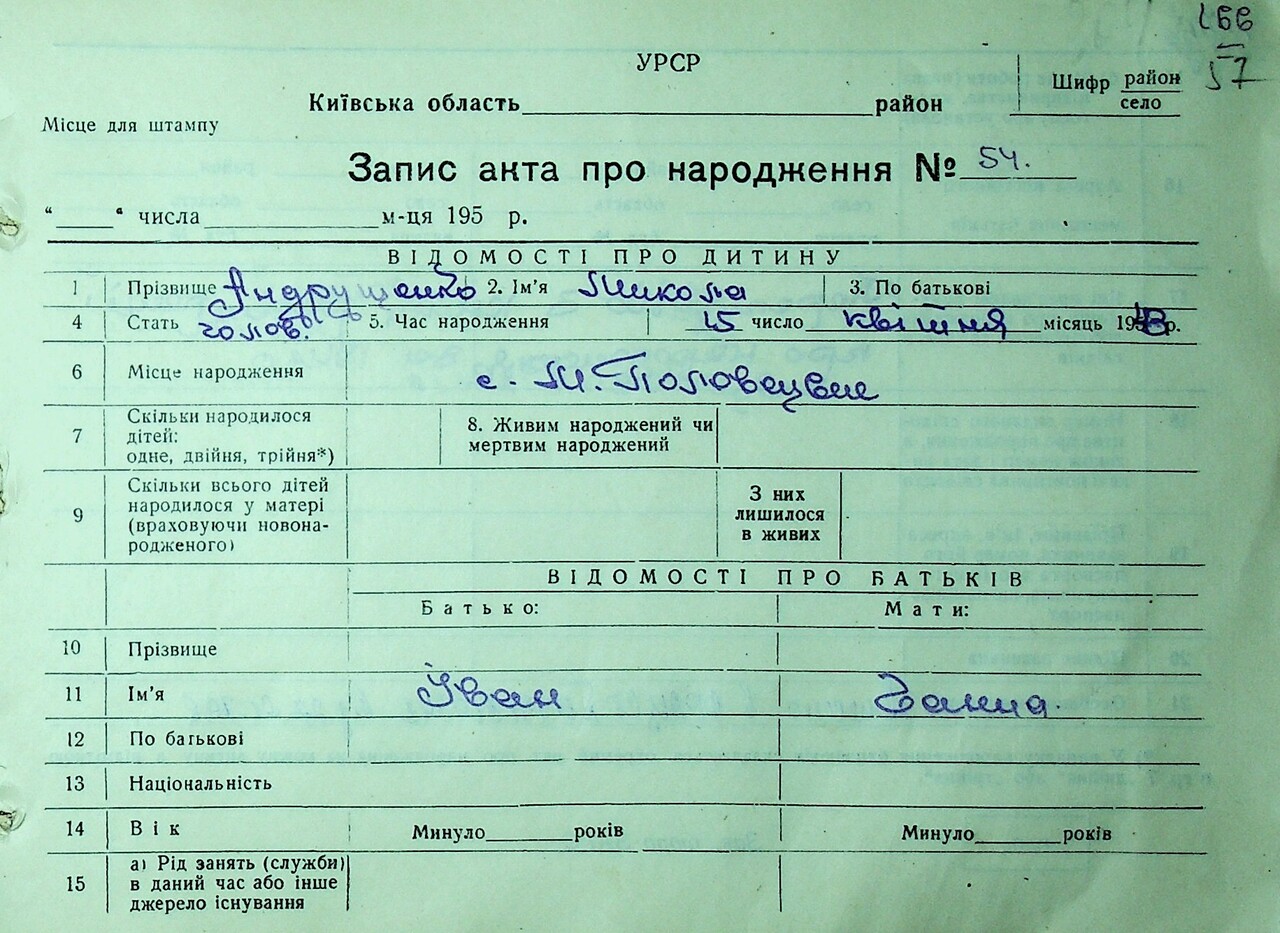 166
57
УРСР
Київська область район Шифр район село
Місце для штампу
Запис акта про народження № 54.
“ “ числа м-ця 195 р.
ВІДОМОСТІ ПРО ДИТИНУ
1 Прізвище Андрущенко 2. Ім'я Микола 3. По батькові
4 Стать голов. 5. Час народження 15 число квітня місяць 19 р.
6 Місце народження с. М. Половецьке
7 Скільки народилося дітей: одне, двійня, трійня*) 8. Живим народжений чи мертвим народжений
9 Скільки всього дітей народилося у матері (враховуючи новонародженого) З них лишилося в живих
ВІДОМОСТІ ПРО БАТЬКІВ
Батько: Мати:
10 Прізвище
11 Ім'я Іван Ганна.
12 По батькові
13 Національність
14 Вік Минуло років Минуло років
15 а) Рід занять (служби) в даний час або інше джерело існування